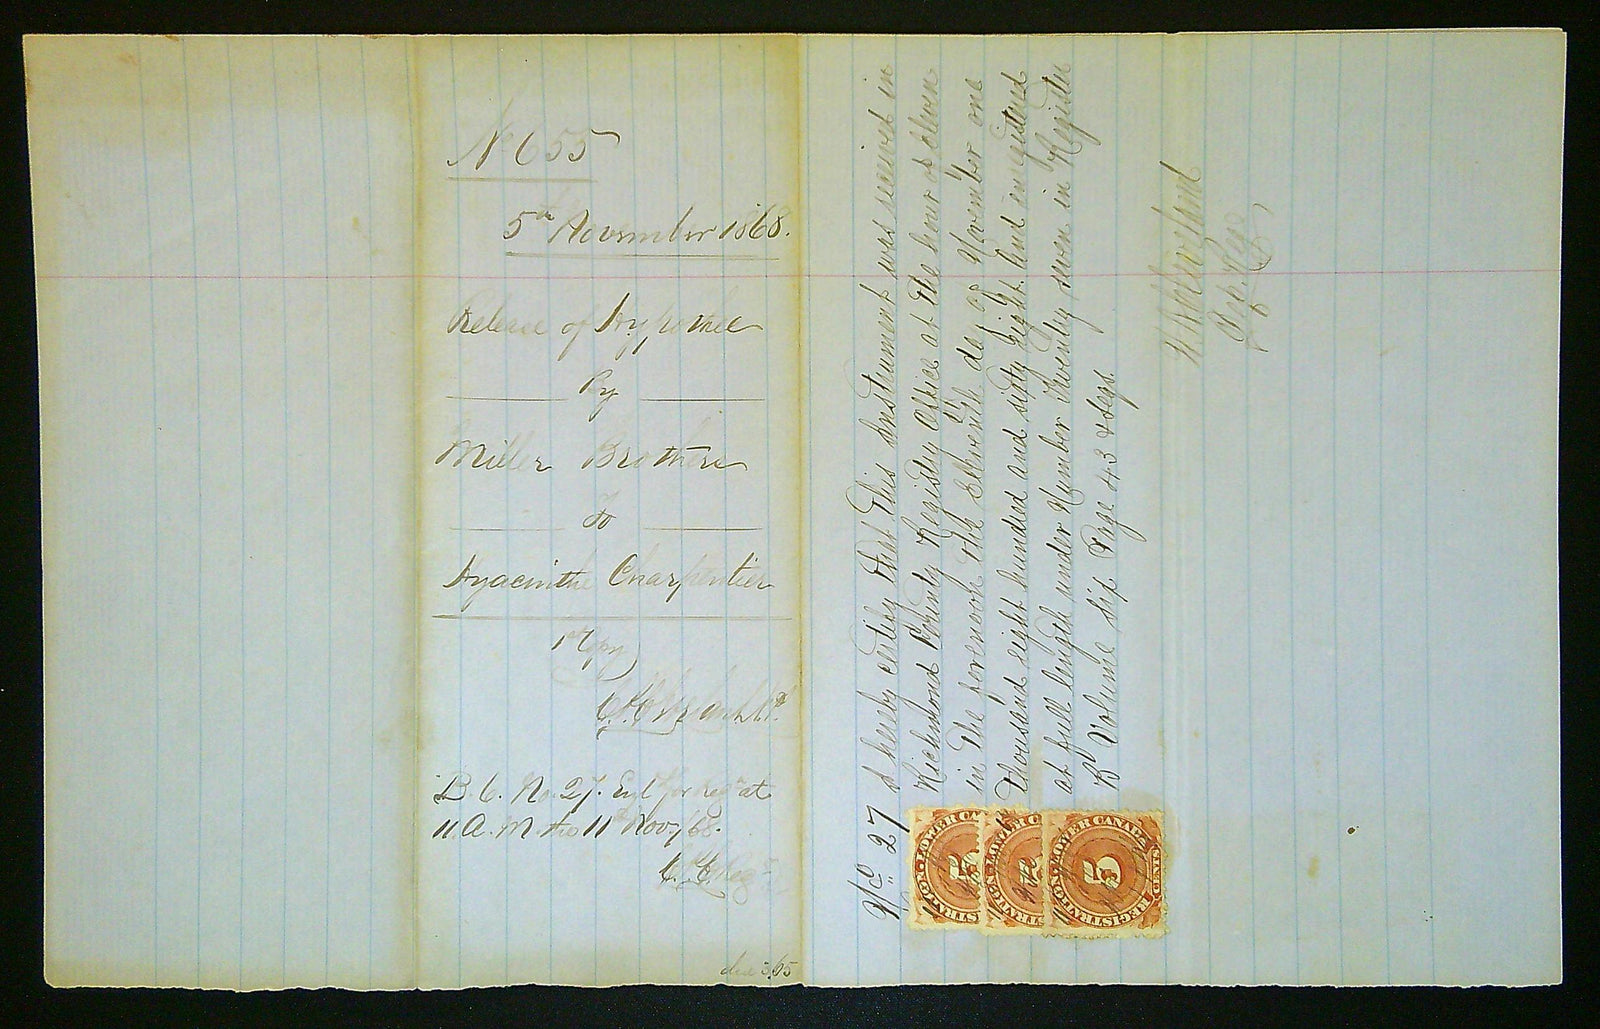 No 655
5th November 1868.
Release of Hypothec
by
Miller Brothers
To
Hyacinthe Charpentier
1st Copy
B. 6. No. 27. Entd for regn at
11 A. M. this 11th Nov/68.
No 27 I hereby certify that this instrument was received in
Richmond County Registry Office at the hour of eleven
in the forenoon the eleventh day of November one
thousand eight hundred and sixty eight and enregistered
at full length under Number twenty seven in Register
B Volume six Page 43 & seqs.
Dep. Reg
LOWER CA
5
STRATION
LOWER C
STRATION
LOWER CANADA
5
CENTS
REGISTRATION